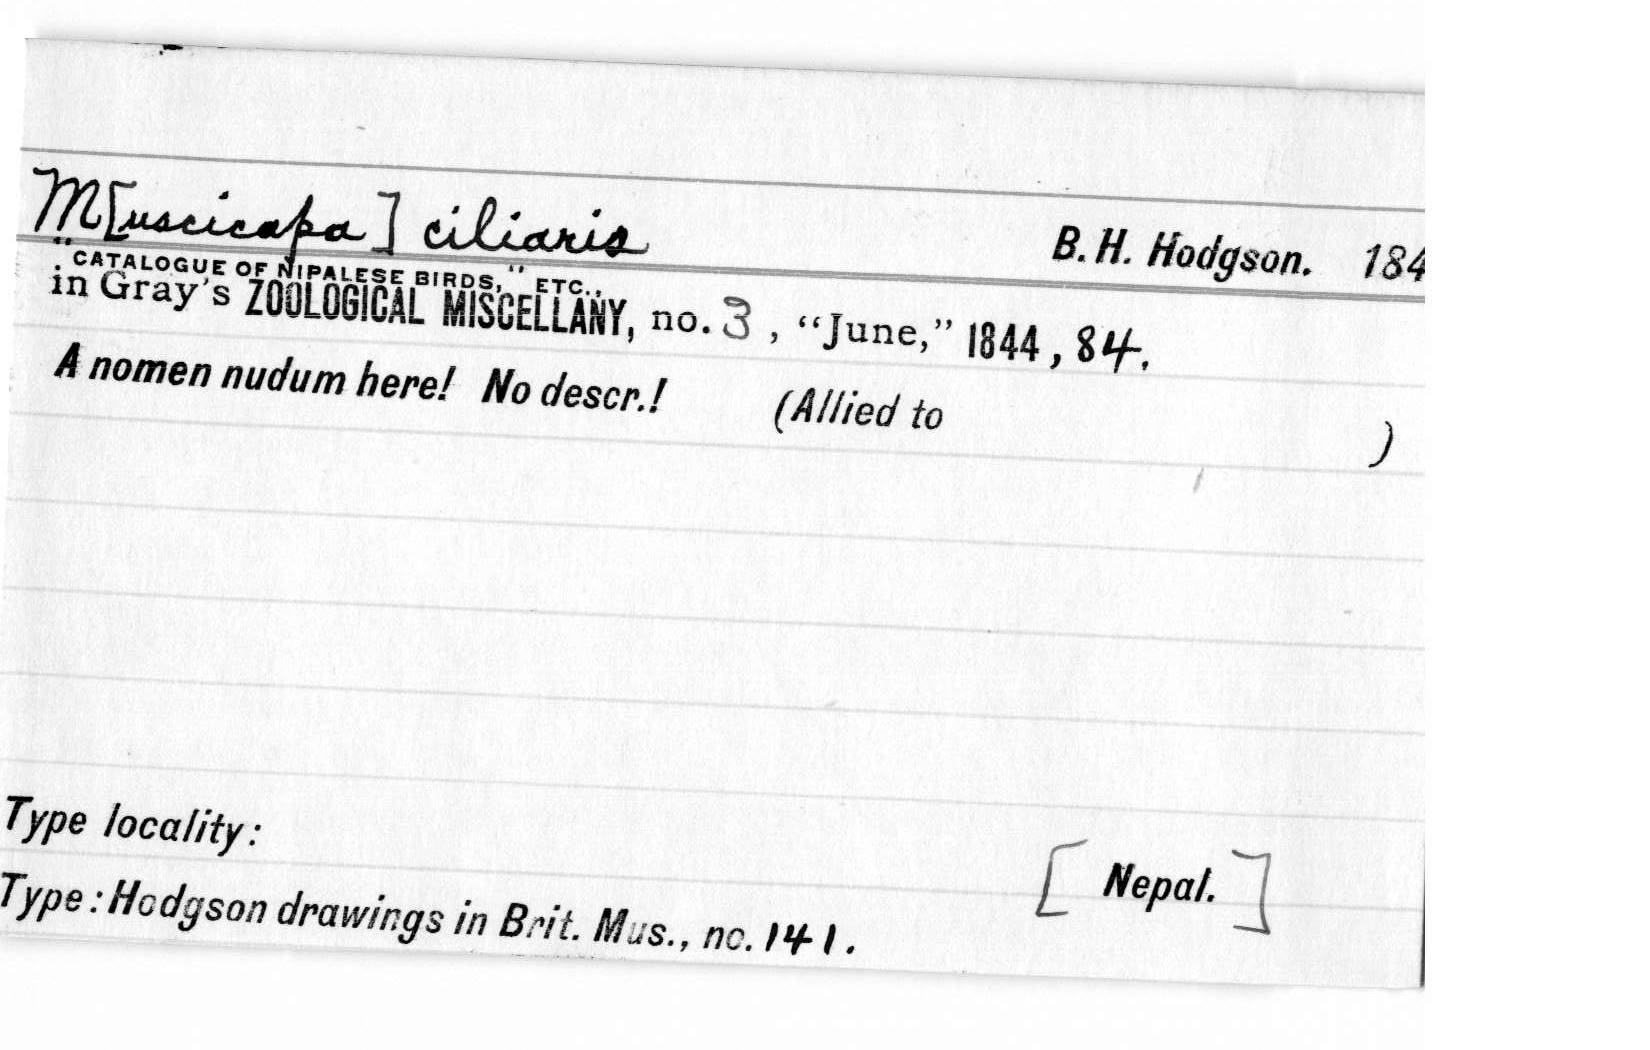 M[uscicapa] ciliaris B. H. Hodgson. 184
"CATALOGUE OF NIPALESE BIRDS," ETC.,
in Gray's ZOOLOGICAL MISCELLANY, no. 3, "June," 1844, 84.
A nomen nudum here! No descr.! (Allied to )
Type locality: [Nepal.]
Type: Hodgson drawings in Brit. Mus., no. 141.